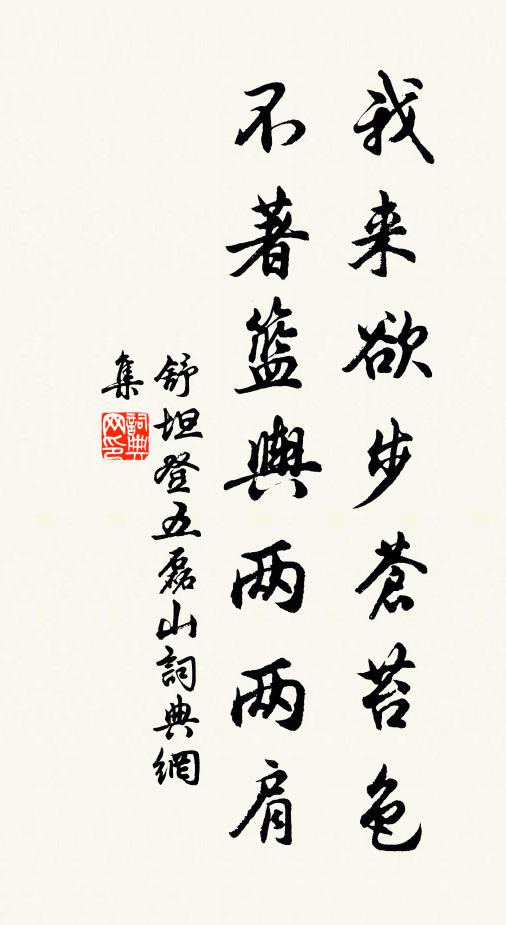 我来欲步蒼苔色
不著籃輿两两肩
舒坦登五磊山詞典網
集
詞典网印